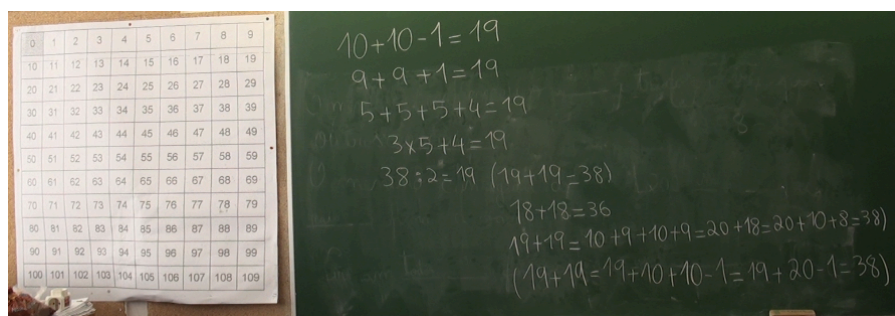 0 1 2 3 4 5 6 7 8 9
10 11 12 13 14 15 16 17 18 19
20 21 22 23 24 25 26 27 28 29
30 31 32 33 34 35 36 37 38 39
40 41 42 43 44 45 46 47 48 49
50 51 52 53 54 55 56 57 58 59
60 61 62 63 64 65 66 67 68 69
70 71 72 73 74 75 76 77 78 79
80 81 82 83 84 85 86 87 88 89
90 91 92 93 94 95 96 97 98 99
100 101 102 103 104 105 106 107 108 109
10+10-1=19
9+9+1=19
5+5+5+4=19
3×5+4=19
38:2=19 (19+19=38)
18+18=36
19+19=10+9+10+9=20+18=20+10+8=38)
(19+19=19+10+10-1=19+20-1=38)